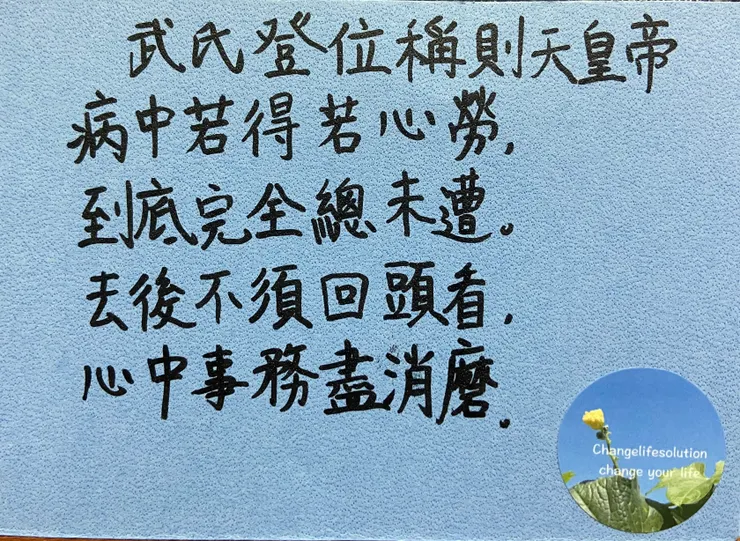 武氏登位稱則天皇帝
病中若得苦心勞,
到底完全總未遭。
去後不須回頭看,
心中事務盡消磨.
Changelifesolution
change your life